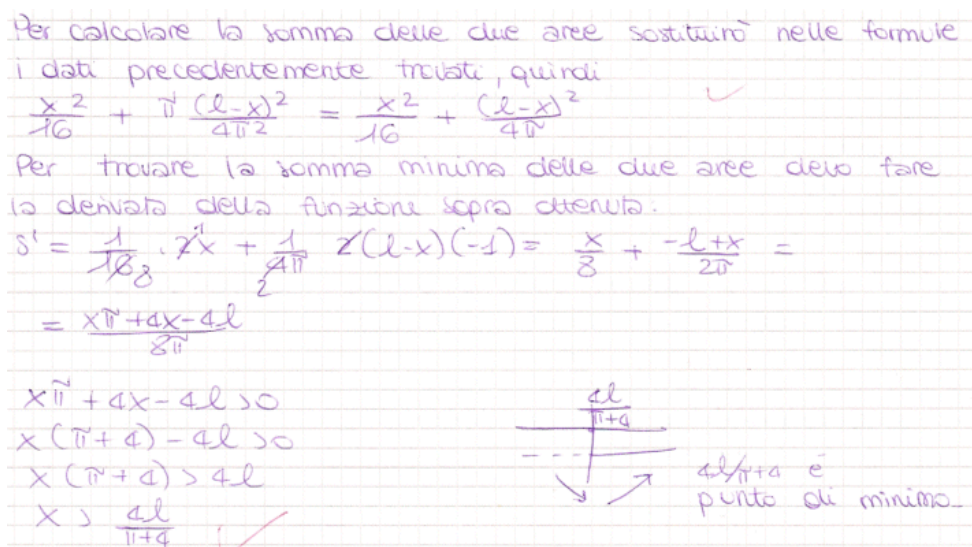 Per calcolare la somma delle due aree sostituirò nelle formule
i dati precedentemente trovati, quindi
x²/16 + π (l-x)²/4π² = x²/16 + (l-x)²/4π
Per trovare la somma minima delle due aree devo fare
la derivata della funzione sopra ottenuta.
s' = 1/16 8 · 2x 1 + 1/4π 2 2(l-x)(-1) = x/8 + -l+x/2π =
= xπ+4x-4l/8π
xπ + 4x - 4l > 0
x(π+4) - 4l > 0
x(π+4) > 4l
x > 4l/π+4
4l/π+4
4l/π+4 è
punto di minimo